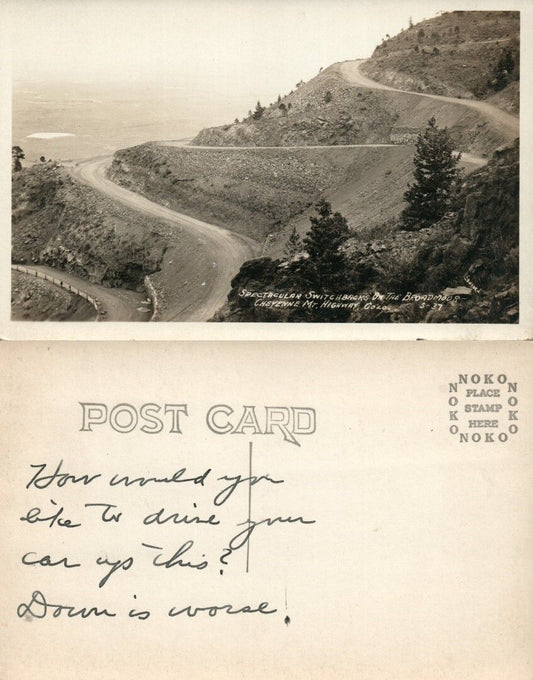 SPECTACULAR SWITCHBACKS ON THE BROADMOOR
CHEYENNE MT. HIGHWAY, COLO. S-37
POST CARD
NOKO
NOKO
PLACE
STAMP
HERE
NOKO
NOKO
How would you
like to drive your
car up this?
Down is worse!